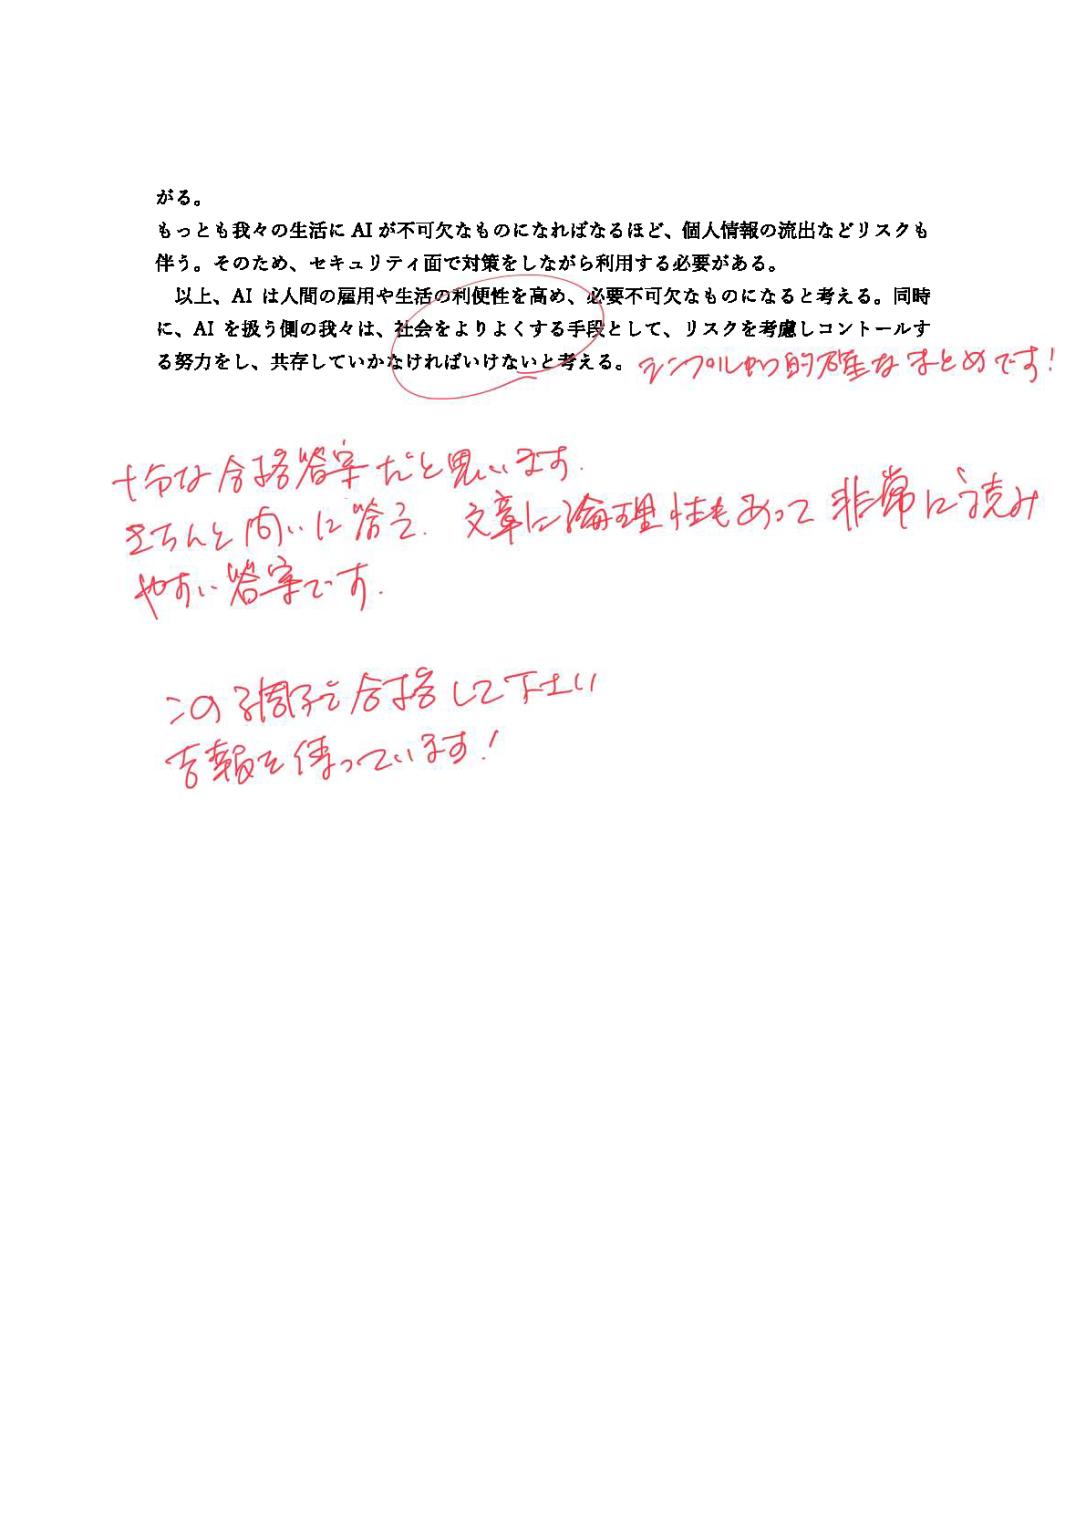 がる。
もっとも我々の生活に AI が不可欠なものになればなるほど、個人情報の流出などリスクも
伴う。そのため、セキュリティ面で対策をしながら利用する必要がある。
以上、AI は人間の雇用や生活の利便性を高め、必要不可欠なものになると考える。同時
に、AI を扱う側の我々は、社会をよりよくする手段として、リスクを考慮しコントールす
る努力をし、共存していかなければいけないと考える。
シンプルかつ的確なまとめです!
十分な合格答案だと思います.
きちんと問いに答え. 文章に論理性もあって非常に読み
やすい答案です.
この調子で合格して下さい
吉報を待っています!